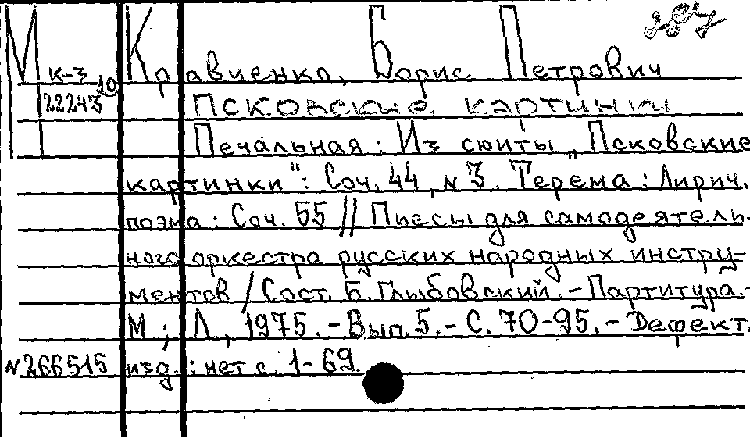 М Кравченко, Борис Петрович
к-3
22243
Псковские картинки
Печальная: Из сюиты „Псковские
картинки": Соч. 44, N 3. Терема: Лирич.
поэма: Соч. 55 // Пьесы для самодеятель-
ного оркестра русских народных инстру-
ментов / Сост. Б. Глыбовский. - Партитура. -
М.; Л., 1975. - Вып. 5. - С. 70-95. - Дефект.
N266515 изд.: нет с. 1-69.